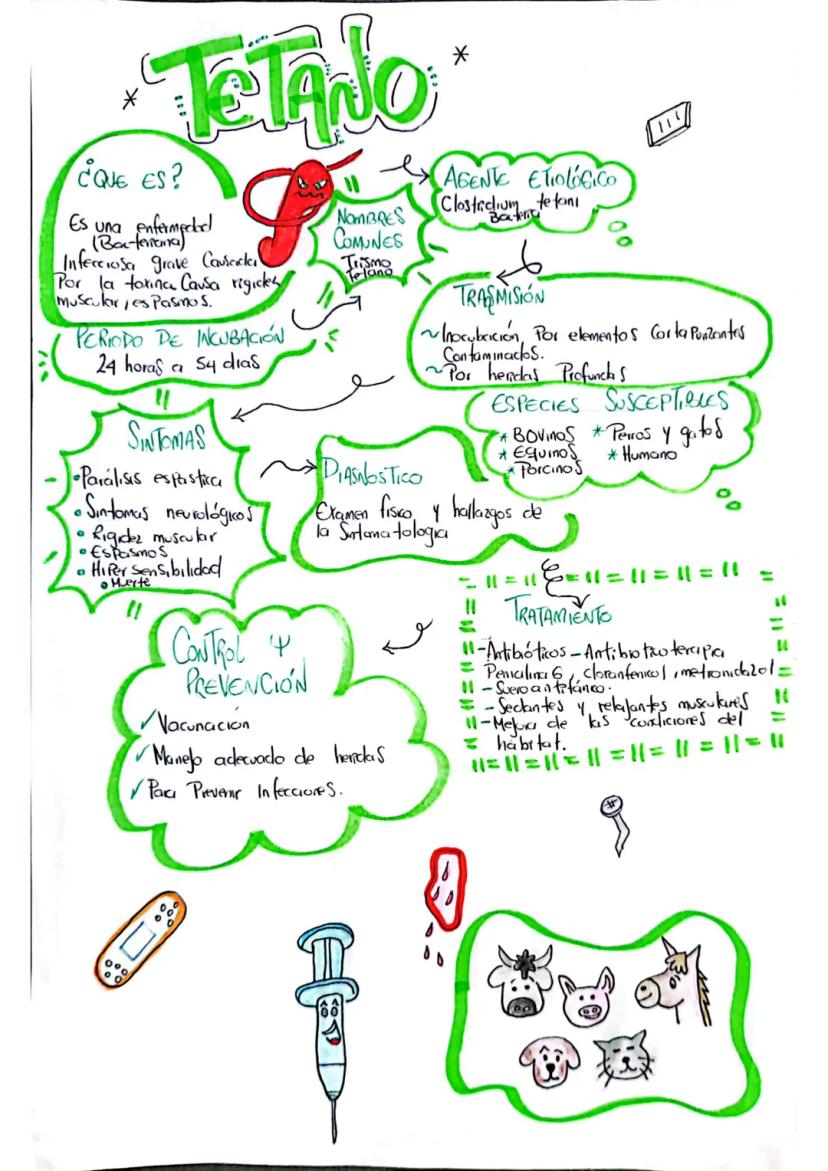 TETANO
¿QUE ES?
Es una enfermedad
(Bacteriana)
Infecciosa grave Causada
Por la toxina Causa rigidez
muscular, esPasmos.
NOMBRES
COMUNES
Trismo
Tetano
AGENTE ETIOLÓGICO
Clostridium tetani
Bacteria
PERIODO DE INCUBACIÓN
24 horas a 54 dias
TRASMISIÓN
~Inocubación Por elementos CortaPunzantes
Contaminados.
~Por heridas Profundas
ESPECIES SUSCEPTIBLES
* BOVINOS
* EQUINOS
* PORCINOS
* Perros y gatos
* Humano
SINTOMAS
•Parálisis espastica
• Sintomas neurológicos
• Rigidez muscular
• EsPasmos
• HiPersensibilidad
• Muerte
DIAGNOSTICO
Examen fisico y hallazgos de
la Sintomatologia
TRATAMIENTO
-Antibóticos -Antibioticoterapia
Penicilina G, cloranfenicol, metronidazol
-Suero antitetánico.
-Sedantes y relajantes musculares
-Mejora de las condiciones del
hábitat.
CONTROL Y
PREVENCIÓN
✓Vacunación
✓Manejo adecuado de heridas
✓Para Prevenir Infecciones.